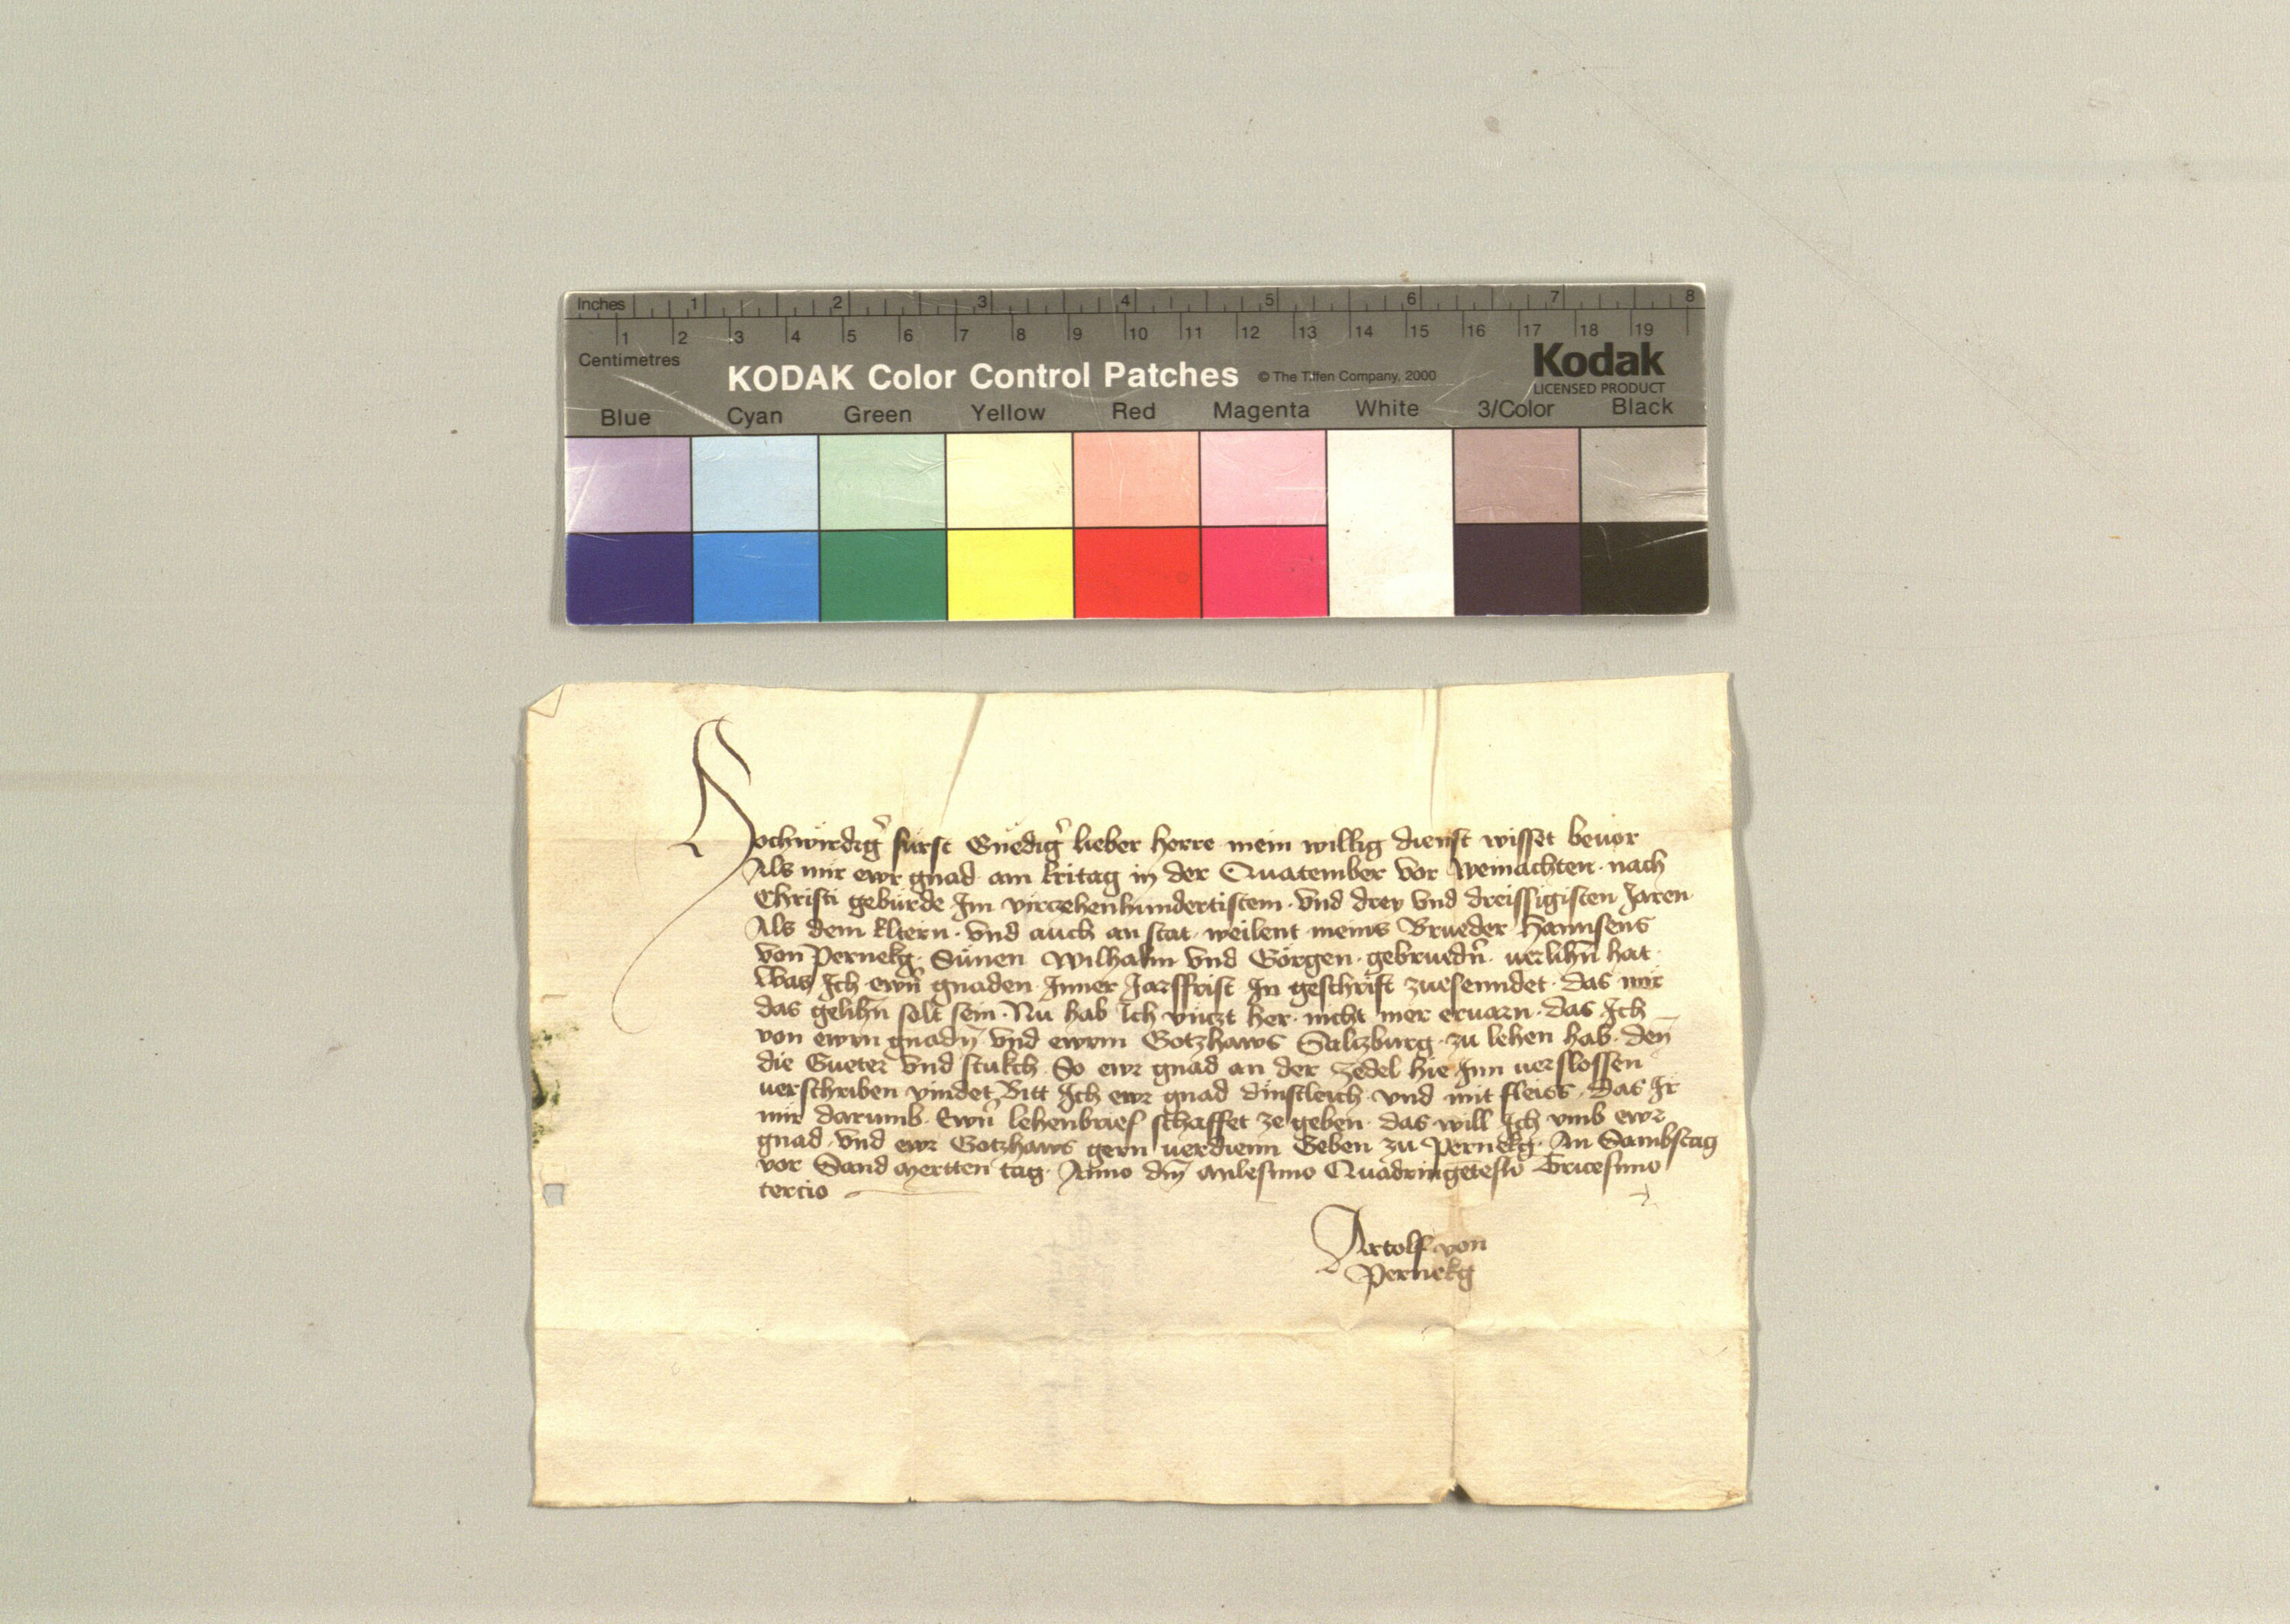 Inches 1 2 3 4 5 6 7 8
1 2 3 4 5 6 7 8 9 10 11 12 13 14 15 16 17 18 19
Centimetres
KODAK Color Control Patches © The Tiffen Company, 2000 Kodak
LICENSED PRODUCT
Blue Cyan Green Yellow Red Magenta White 3/Color Black
Hochwirdigr fürst Gnedigr lieber herre mein willig dienst wisset beuor
Als mir ewr gnad am fritag in der Quatember vor Weinachten nach
Christi gebürde Im virczehenhundertistem vnd drey vnd dreissigisten Jaren
Als dem Eltern vnd auch an stat weilent meins Brueder Hannsens
von Pernekg Sünen Wilhalm vnd Görgen gebruedn verlihn hat
Was Ich ewrn gnaden Inner Jarsfrist In geschrift zuesenndet das mir
das gelihn solt sein Nu hab Ich vnczt her nicht mer eruarn das Ich
von ewrn gnadn vnd ewrm Gotzhaws Salczburg zu lehen hab den
die Gueter vnd stukch So ewr gnad an der zedel hie Inn verslossen
verschriben vindet Bitt Ich ewr gnad dinstleich vnd mit fleiss Das Ir
mir darumb Ewrn lehenbrief schaffet ze geben das will Ich vmb ewr
gnad vnd ewr Gotzhaws gern verdienn Geben zu Pernekg An Sambstag
vor Sand Mertten tag Anno dm Mlesimo Quadringetesio Tricesimo
tercio
Artolf von
Pernekg